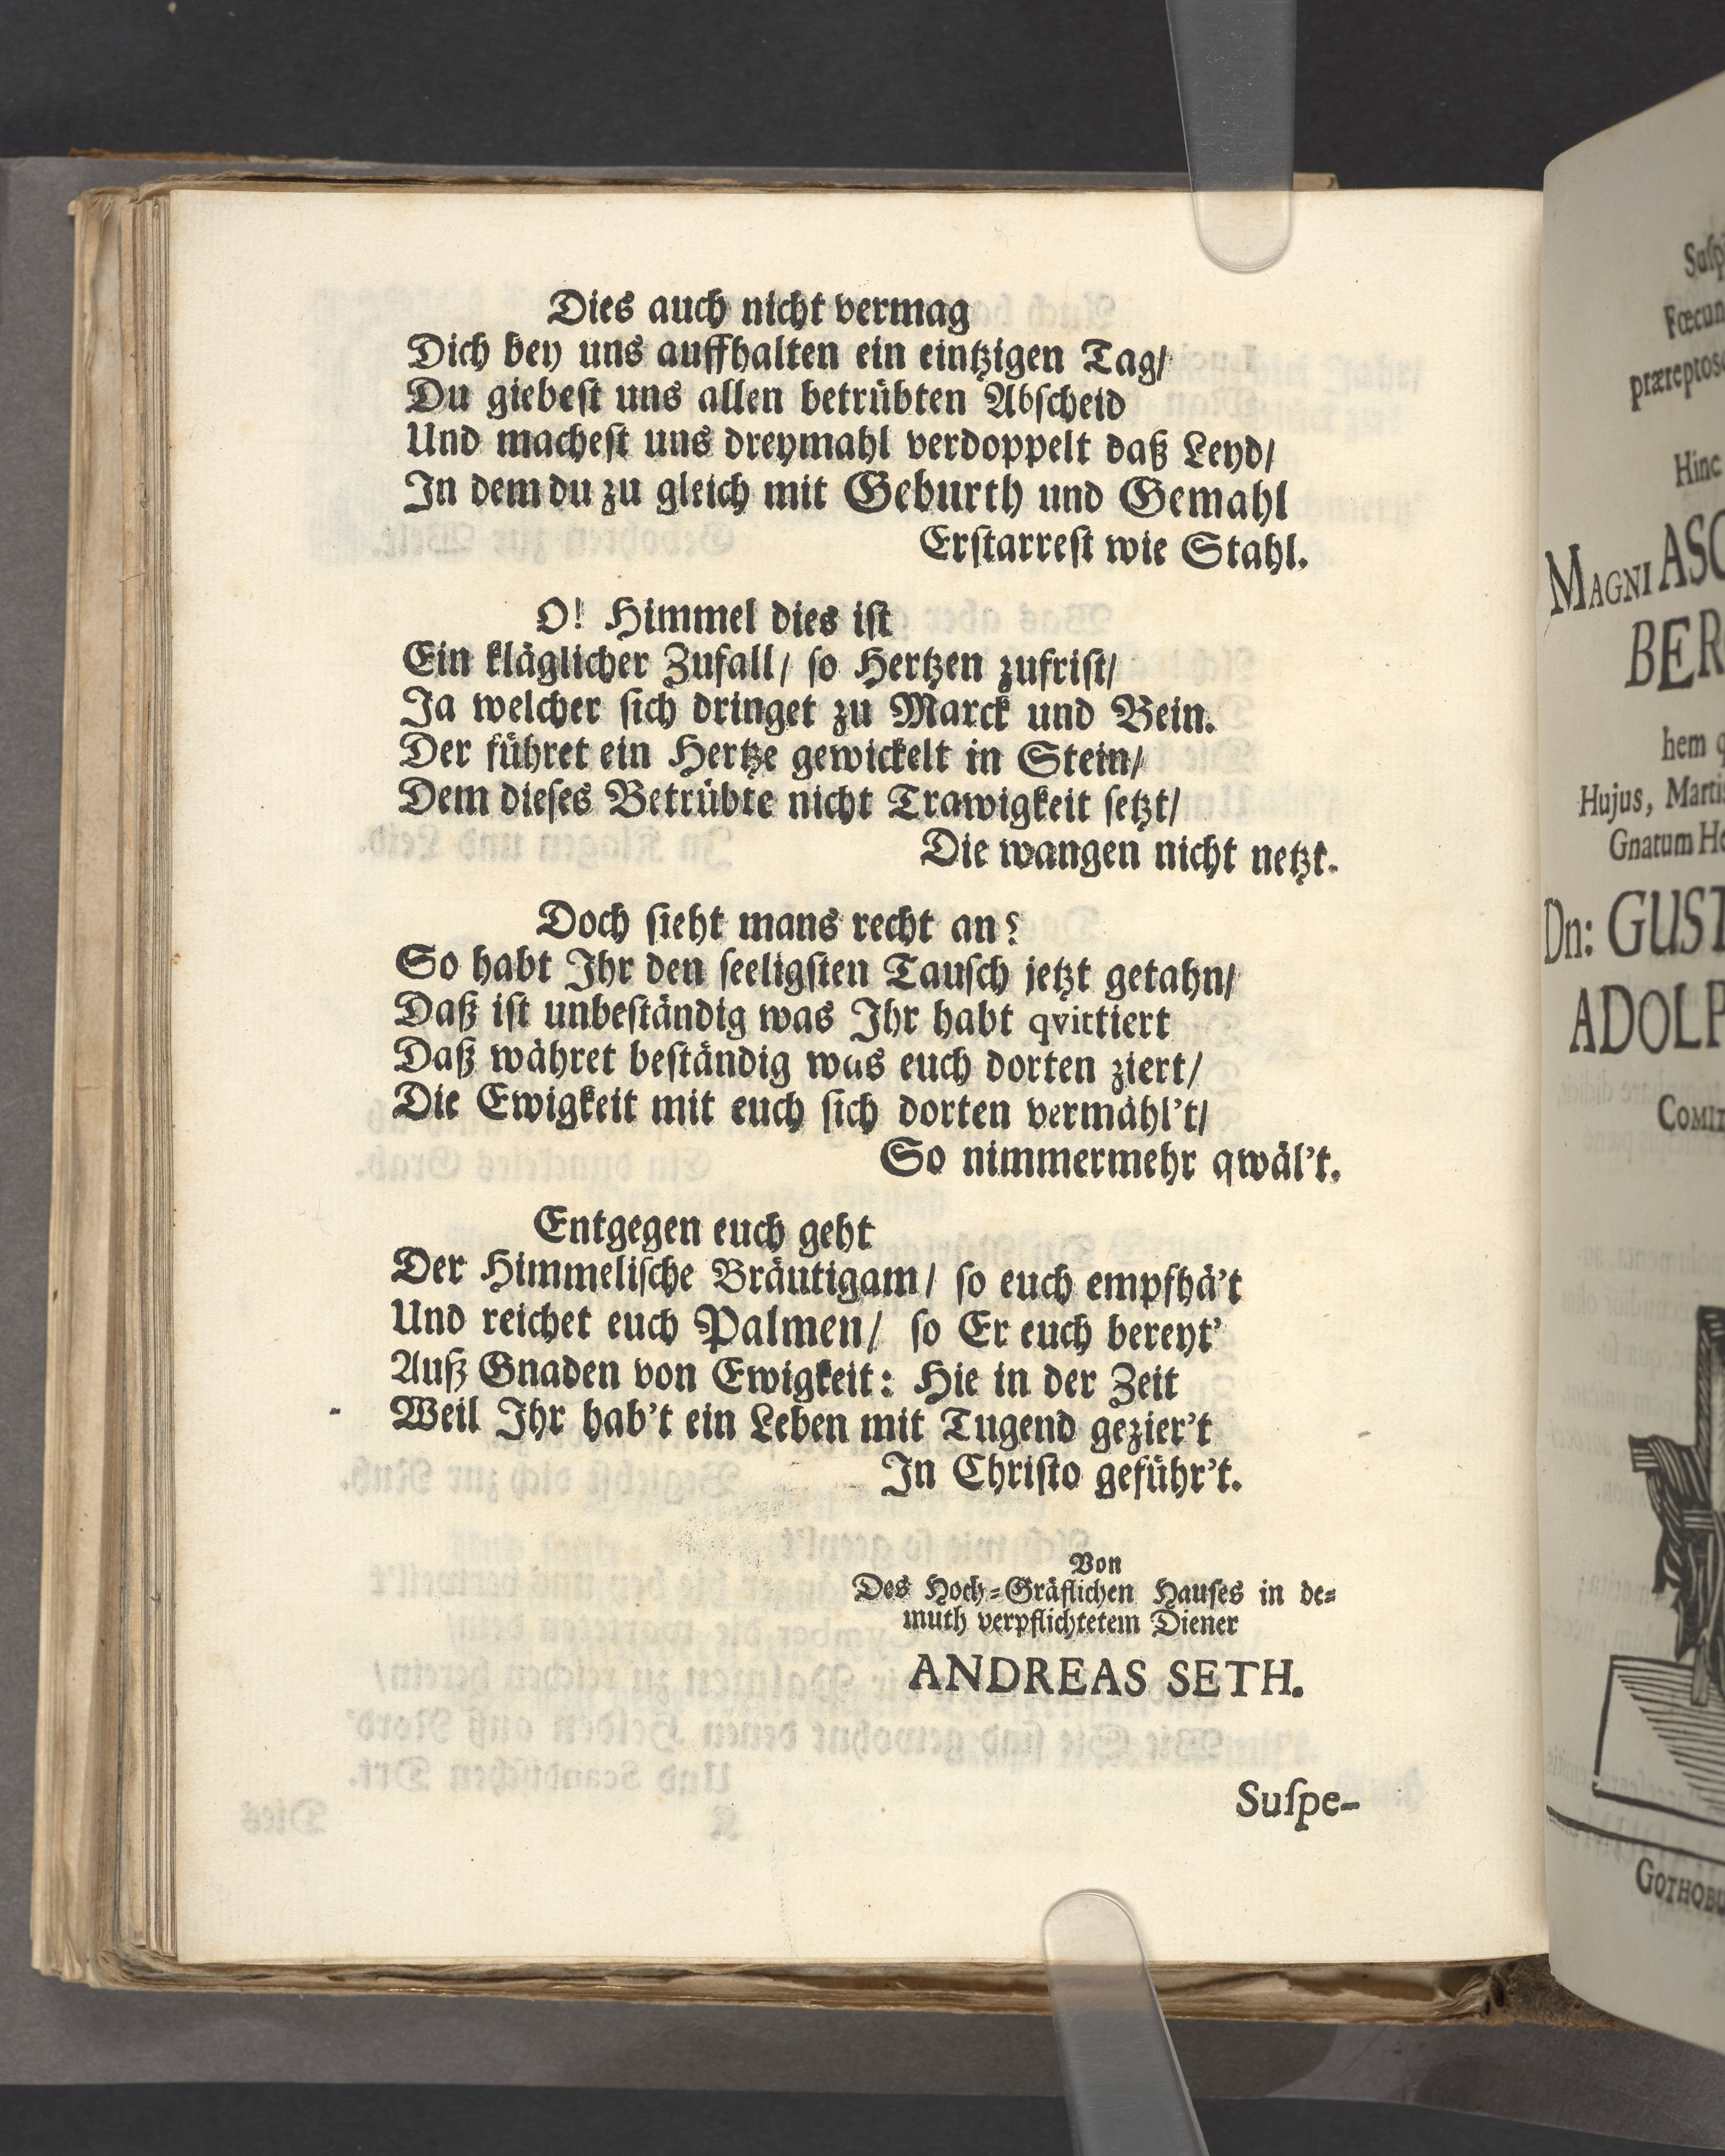 Dies auch nicht vermag
Dich bey uns auffhalten ein eintzigen Tag/
Du giebest uns allen betrübten Abscheid
Und machest uns dreymahl verdoppelt daß Leyd/
In dem du zu gleich mit Geburth und Gemahl
Erstarrest wie Stahl.
O! Himmel dies ist
Ein kläglicher Zufall/ so Hertzen zufrist/
Ja welcher sich dringet zu Marck und Bein.
Der führet ein Hertze gewickelt in Stein/
Dem dieses Betrübte nicht Trawigkeit setzt/
Die wangen nicht netzt.
Doch sieht mans recht an?
So habt Ihr den seeligsten Tausch jetzt getahn/
Daß ist unbeständig was Ihr habt qvittiert
Daß währet beständig was euch dorten ziert/
Die Ewigkeit mit euch sich dorten vermähl't/
So nimmermehr qwäl't.
Entgegen euch geht
Der Himmelische Bräutigam/ so euch empfhä't
Und reichet euch Palmen/ so Er euch bereyt'
Auß Gnaden von Ewigkeit: Hie in der Zeit
Weil Ihr hab't ein Leben mit Tugend gezier't
In Christo geführ't.
Von
Des Hoch-Gräflichen Hauses in de-
muth verpflichtetem Diener
ANDREAS SETH.
Suspe-
Hinc
MAGNI ASC
BER
hem q
Hujus, Martis
Gnatum He
Dn: GUST
ADOLP
COMIT
GOTHOBU